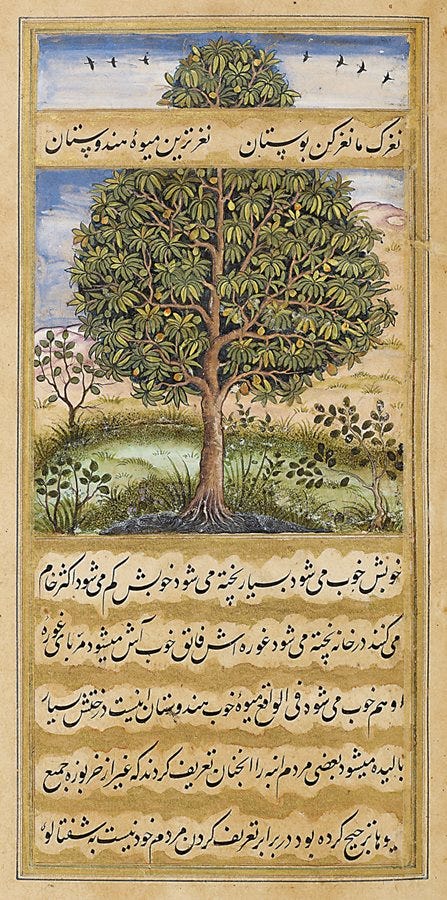 نغزک ما نغز کن بوستان نغزترین میوهٔ هندوستان
خوبش خوب می شود بسیار پخته می شود خوبش کم می شود اکثر خام
می کنند در خانه پخته می شود غوره اش قاتق خوب آش میشود مربای غوره
او هم خوب می شود فی الواقع میوهٔ خوب هندوستان اینست درختش بسیار
بالیده میشود بعضی مردم انبه را آنچنان تعریف کردند که غیر از خربوزه جمیع
میوها ترجیح کرده بود در برابر تعریف کردن مردم خود نیست به شفتالوی